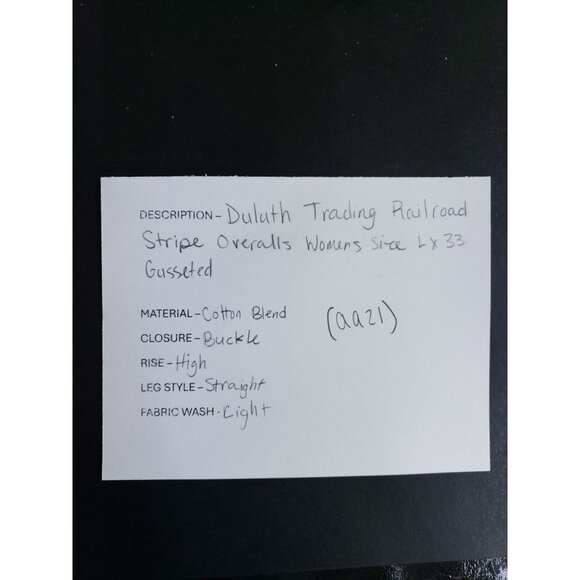 DESCRIPTION - Duluth Trading Railroad
Stripe Overalls Womens Size L x 33
Gusseted
MATERIAL - Cotton Blend
(aa21)
CLOSURE - Buckle
RISE - High
LEG STYLE - Straight
FABRIC WASH - Light